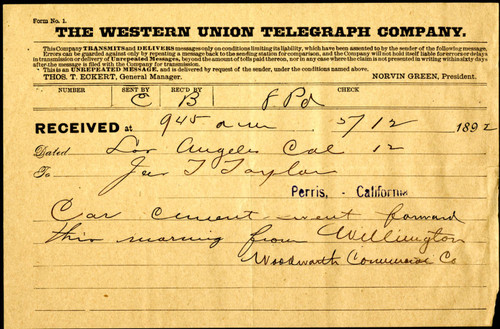 Form No. 1.
THE WESTERN UNION TELEGRAPH COMPANY.
This Company TRANSMITS and DELIVERS messages only on conditions limiting its liability, which have been assented to by the sender of the following message.
Errors can be guarded against only by repeating a message back to the sending station for comparison, and the Company will not hold itself liable for errors or delays
in transmission or delivery of Unrepeated Messages, beyond the amount of tolls paid thereon, nor in any case where the claim is not presented in writing within sixty days
after the message is filed with the Company for transmission.
This is an UNREPEATED MESSAGE, and is delivered by request of the sender, under the conditions named above.
THOS. T. ECKERT, General Manager. NORVIN GREEN, President.
NUMBER SENT BY REC'D BY CHECK
C B 8 Pd
RECEIVED at 945 am 5/12 1892
Dated Los Angeles Cal 12
To Taylor
Perris, - California
Car cement went forward
this morning from Wilmington
Woodworth Commercial Co